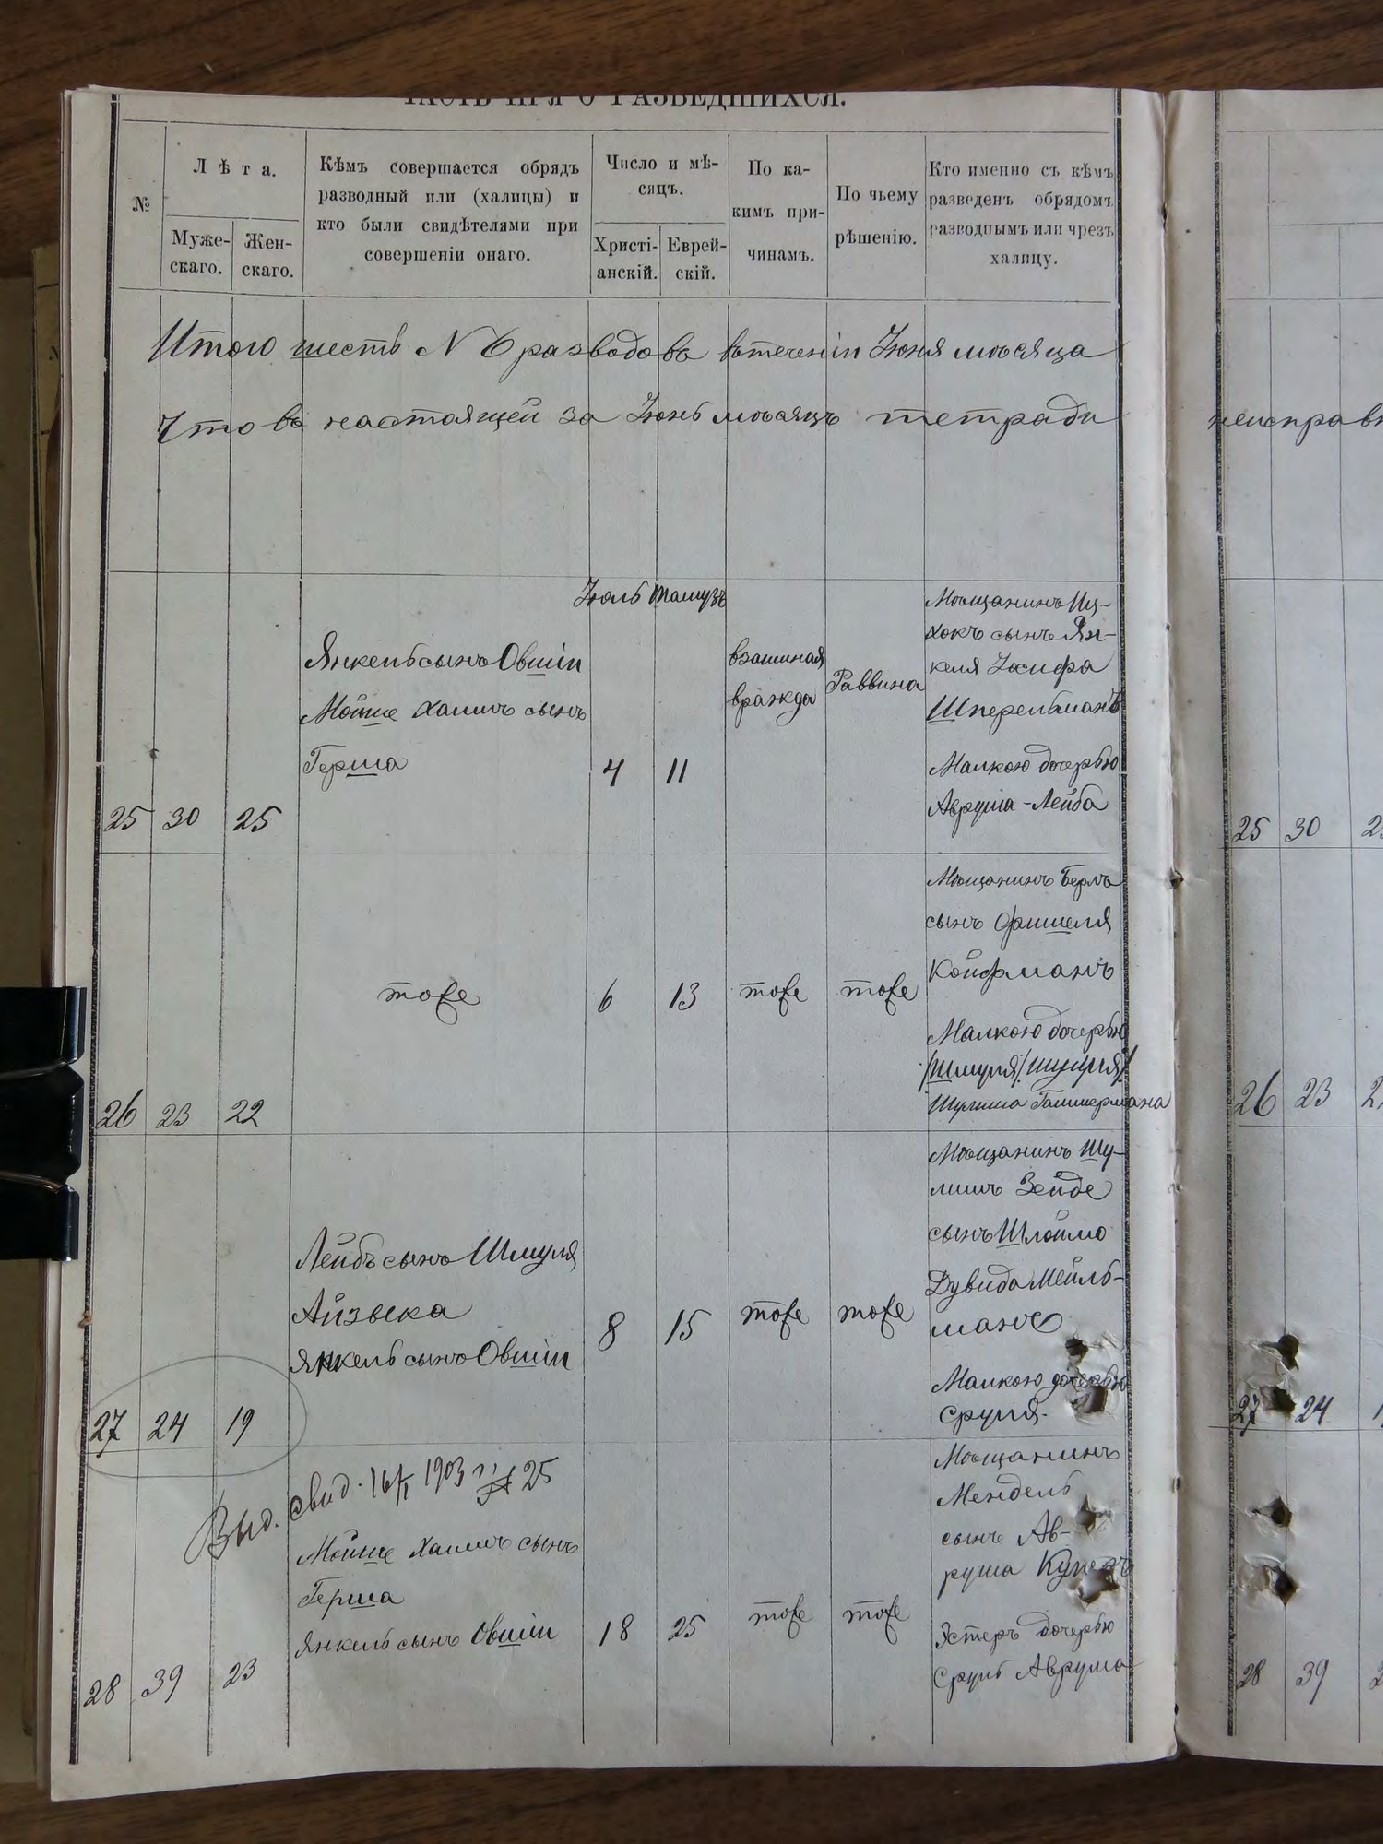 ЧАСТЬ III-Я О РАЗВЕДШИХСЯ.
№
Лѣта.
Муже-
скаго.
Жен-
скаго.
Кѣмъ совершается обрядъ
разводный или (халицы) и
кто были свидѣтелями при
совершеніи онаго.
Число и мѣ-
сяцъ.
Христі-
анскій.
Еврей-
скій.
По ка-
кимъ при-
чинамъ.
По чьему
рѣшенію.
Кто именно съ кѣмъ
разведенъ обрядомъ
разводнымъ или чрезъ
халицу.
Итого шесть N 6 разводовъ втеченіи Іюня мѣсяца
Что въ настоящей за Іюнь мѣсяцъ тетради
Іюль Тамузъ
25 30 25
Янкель сынъ Овшіи
Мойше Хаимъ сынъ
Герша
4 11
взаимная
вражда
Раввина
Мѣщанинъ Иц-
хокъ сынъ Ян-
келя Іосифа
Шперельманъ
Малкою дочерью
Авруша-Лейба
26 23 22
тоже
6 13
тоже
тоже
Мѣщанинъ Берлъ
сынъ Фишеля
Койфманъ
Малкою дочерью
27 24 19
Лейбъ сынъ Шмуля
Айзыка
Янкель сынъ Овшіи
8 15
тоже
тоже
Мѣщанинъ Шу-
лимъ Зейде
сынъ Шлоймо
Дувида Мейль-
манъ
Малкою дочерью
Сруля.
Выд. свид. 16/I 1903 г. № 25
28 39 23
Мойше Хаимъ сынъ
Герша
Янкель сынъ Овшіи
18 25
тоже
тоже
Мѣщанинъ
Мендель
сынъ Ав-
рума Купецъ
Эстеръ дочерью
Сруль Аврума
неисправн
25 30
26 23
27 24
28 39